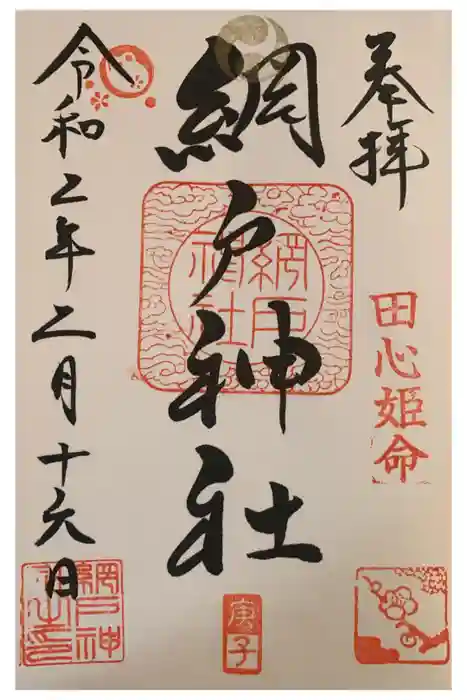 奉拝
田心姫命
綱戸神社
網戸神社
庚子
令和二年二月十六日
網戸神